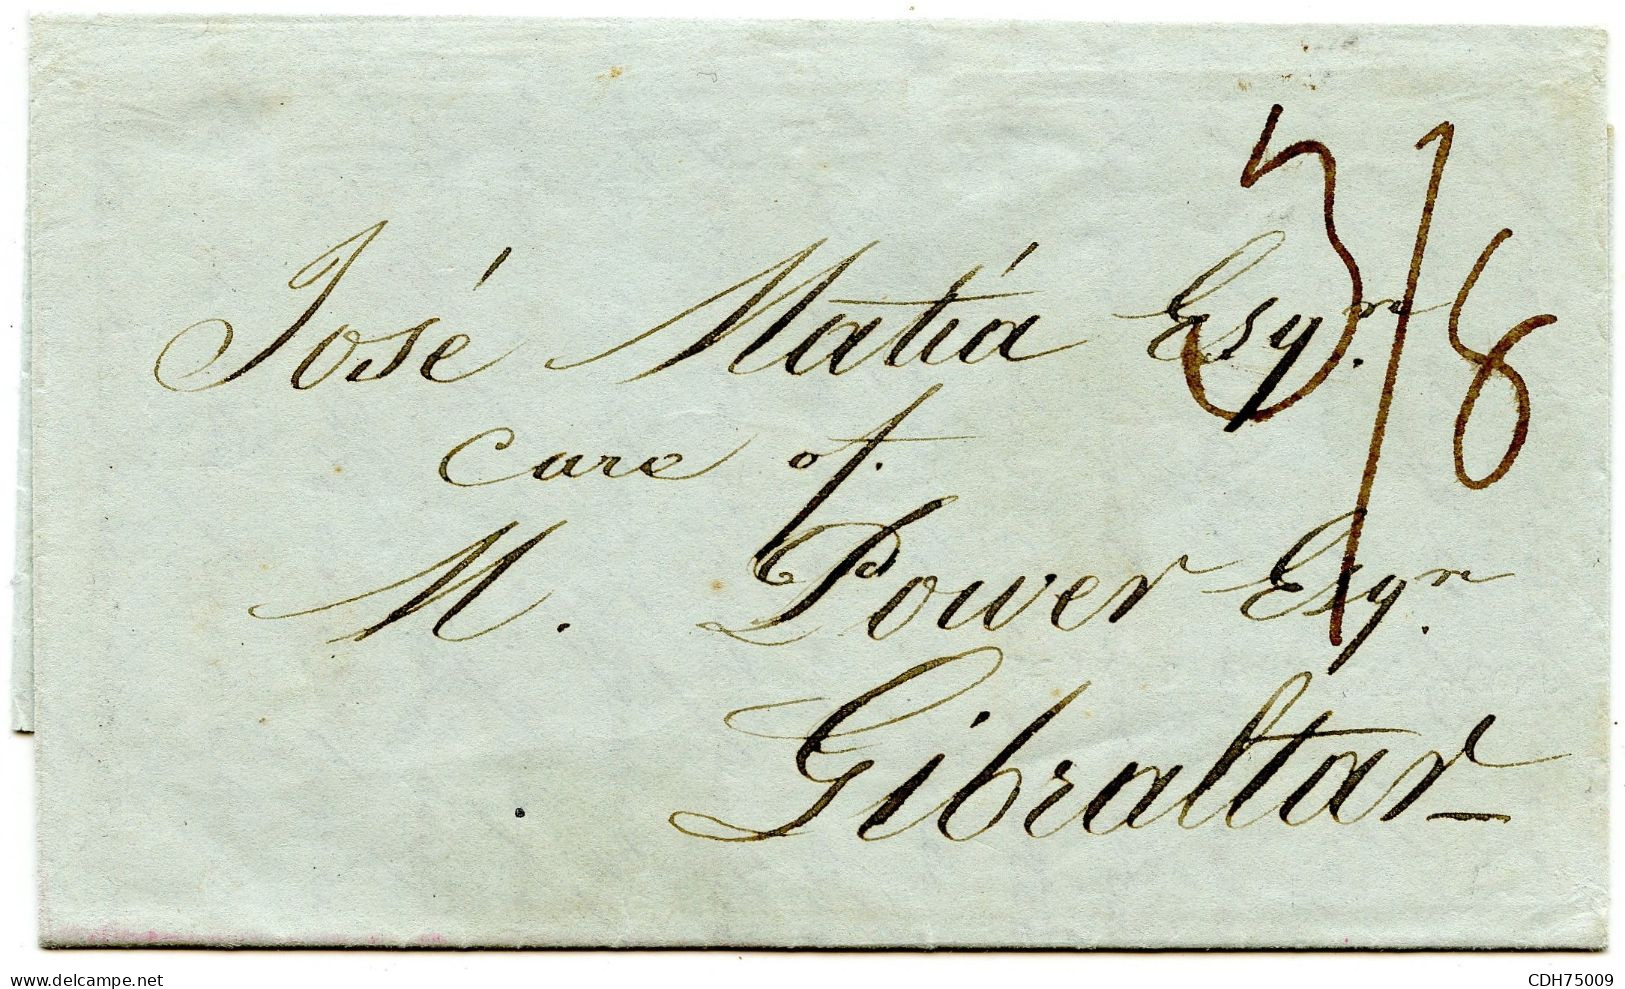 3/8
José Matiá Esqre.
care of.
M. Power Esqr.
Gibraltar
www.delcampe.net
CDH75009